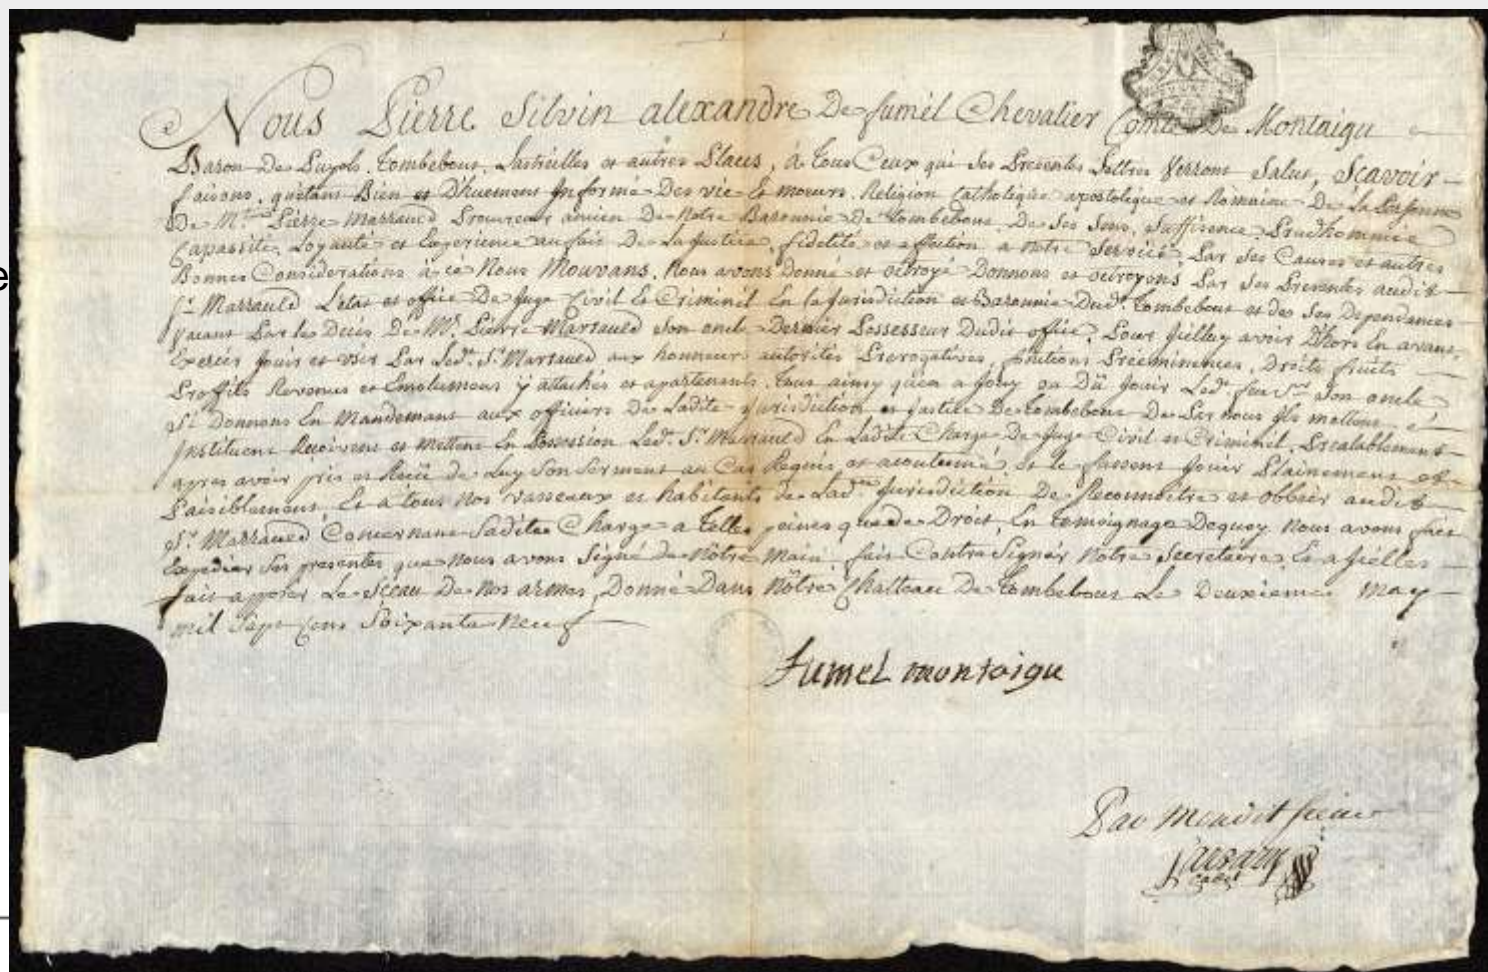 Nous Pierre Silvin alexandre De fumel Chevalier Comte De Montaigu
Baron De Pujols, Tombebouc, Lastreilles et autres Places, à Tous Ceux qui Ses Presentes Lettres Verront Salut, Scavoir
faisons, quetant Bien et Dhuement Informé Des vie et moeurs, Religion Catholique apostolique et Romaine De La Personne
De Mre Pierre Marrauld Procureur ancien De Notre Baronnie De Tombebouc, De Ses Sens, Suffisence, Prudhommie
Capassité, Loyauté et Experience au fait De La Justice, fidelité et affection a notre Service, Par Ses Causes et autres
Bonnes Considerations à cé Nous Mouvans, Nous avons Donné et octroyé Donnons et octroyons Par Ses Presentes audit
Sr. Marrauld Letat et office De Juge Civil et Criminel En la Jurisdiction et Baronnie Dud. Tombebouc et des Ses Dependances
Vacant Par les Deces De Mr. Pierre Marrauld Son oncle Dernier Possesseur Dudit office, Pour Jcelluy avoir D'hors En avant,
Exercer Jouir et User Par Led. Sr. Marrauld aux honneurs autorités Prerogatives, Preeminences, Droits fruits
Proffits Revenus et Emolumens y attachés et apartenants, Tout ainsy qu'en a Jouy ou Dû Jouir Led. feu Sr. Son oncle,
Si Donnons En Mandement aux officiers De Ladite Jurisdiction et Justice De Tombebouc De Par nous Jls mettent, et
Jnstituent Recoivent et Mettent En Possession Led. Sr. Marrauld En Ladite Charge De Juge Civil et Criminel, Prealablement
apres avoir pris et Recü de Luy Son Serment au Cas Requis et acoutumé, et le fassent Jouir Plainement et
Paisiblement, Et a tous nos vasseaux et habitants de Lad. Jurisdiction De Reconnoitre et obbéir audit
Sr. Marrauld Concernant Ladite Charge a Telles peines que de Droit, En Temoignage Dequoy Nous avons fait
Expedier Ses presentes que Nous avons Signé de Nôtre Main fait Contre Signer Notre Secretaire, Et a Jcelles
fait apposer Le Sceau De Nos armes, Donné Dans Nôtre Chatteau De Tombebouc Le Deuxieme May
mil Sept Cens Soixante Neuf
Fumel montaigu
Par Mondit Sieur
e